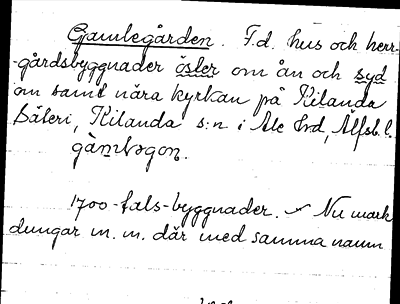 Gamlegården. F.d. hus och herr-
-gårdsbyggnader öster om ån och syd
om samt nära kyrkan på Kilanda
Säteri, Kilanda s:n i Ale hrd, Älfsb. l.
gàmləgọn.
1700-tals-byggnader. Nu mark
dungar m.m. där med samma namn